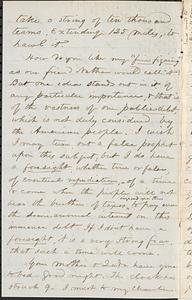 take a string of ten thousand
teams, Extending 125 miles, to
hawl it.
How do you like my "finefiguring"
as our friend Nathan would call it?
But one idea stands out in it of
any particular importance & that is
of the vastness of our public debt
which is not duly considered by
the American people. I wish
I may turn out a false prophet
upon this subject, but I do have
a foresight, whether true or false,
of eventual repudiation, of a time
to come when the people will not
bear the burthen of taxes, to pay
the semi-annual interest on this
immense debt. If I dont have a
foresight it is a very strong fear
that such a time will come.
Your Mother and all have gone
to bed. Good night. The clock has
struck 9. I must to my chamber